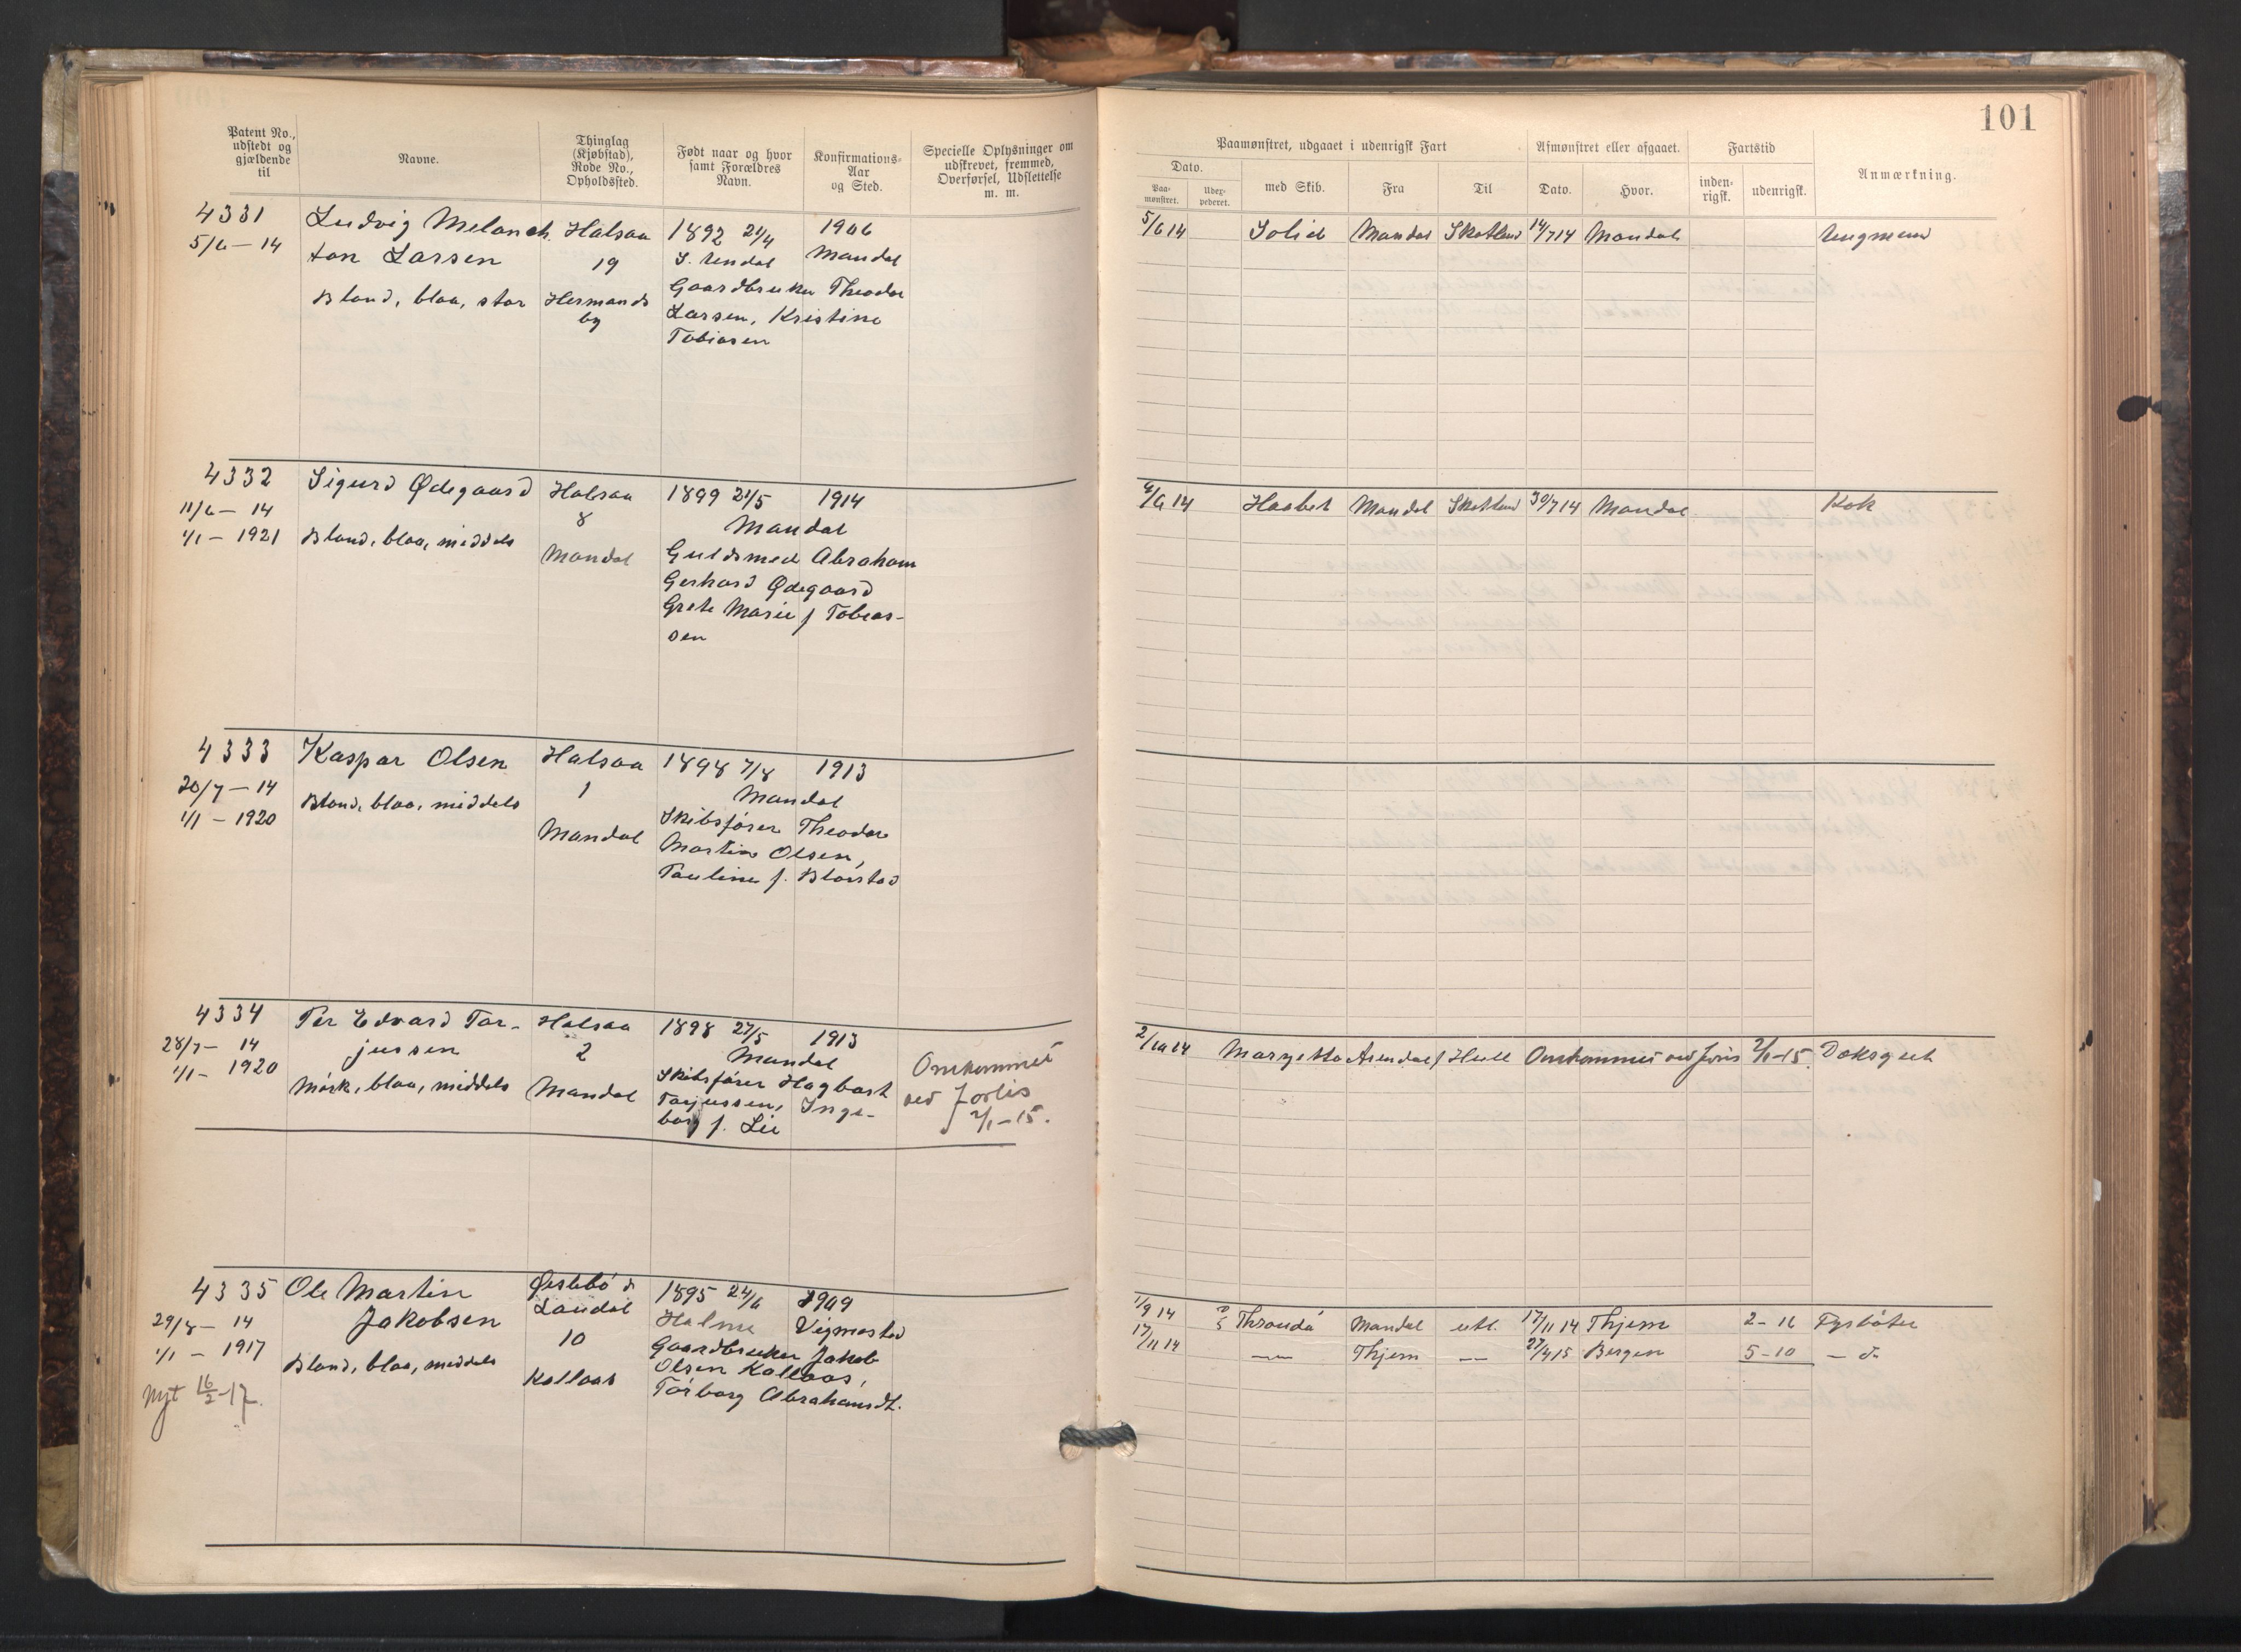 101
Patent No., udstedt og gjældende til
Navne.
Thinglag (Kjøbstad), Rode No., Opholdssted.
Født naar og hvor samt Forældres Navn.
Konfirmations-Aar og Sted.
Specielle Oplysninger om udskrevet, fremmed, Overførsel, Udslettelse m. m.
Paamønstret, udgaaet i udenrigsk Fart
Afmønstret eller afgaaet.
Fartstid
Anmærkning.
Dato.
Paamønstret.
med Skib.
Fra
Til
Dato.
Hvor.
indenrigsk.
udenrigsk.
4331 Ludvig Melanch. Halsaa 1892 21/4 1906
5/6 – 14 ton Larsen 19 S. Undal Mandal
Blond, blaa, stor Hermands Gaardbruker Theodor
by Larsen, Kristine
Tobiasen
5/6 14 Solid Mandal Skotland 14/7 14 Mandal Ungmand
4332 Sigurd Ødegaard Halsaa 1899 21/5 1914
11/6 – 14 8 Mandal
1/1 – 1921 Blond, blaa, middels Mandal Guldsmed Abraham
Gerhard Ødegaard
Grete Marie f Tobias-
sen
Haabet Mandal Skotland 30/7 14 Mandal Kok
4333 Kaspar Olsen Halsaa 1898 7/8 1913
20/7 – 14 1 Mandal
1/1 – 1920 Blond, blaa, middels Mandal Skibsfører Theodor
Martin Olsen,
Pauline f.
4334 Per Edvard Tar- Halsaa 1898 27/5 1913
28/7 – 14 jussen 2 Mandal
1/1 – 1920 Mörk, blaa, middels Mandal Skibsfører Hagbart
Tarjussen, Inge-
borg f. Lie
Omkommet
ved Forlis
2/1 – 15.
2/10 14 Margetta Arendal f Hull Omkommet ved forlis 2/1 – 15. Doksgut
4335 Ole Martin Øislebö & 1895 24/6 1909
29/8 – 14 Jakobsen Laudal Holme Vigmostad
1/1 – 1917 10 Gaardbruker Jakob
Blond, blaa, middels Kollaas Olsen Kollaas,
Nyt 16/2 – 17. Torborg Abrahamsdt.
1/9 14 Throndö Mandal utl. 17/11 14 Thjem 2 – 16 Fyrböter
17/11 14 — Thjem — 27/4 15 Bergen 5 – 10 – do